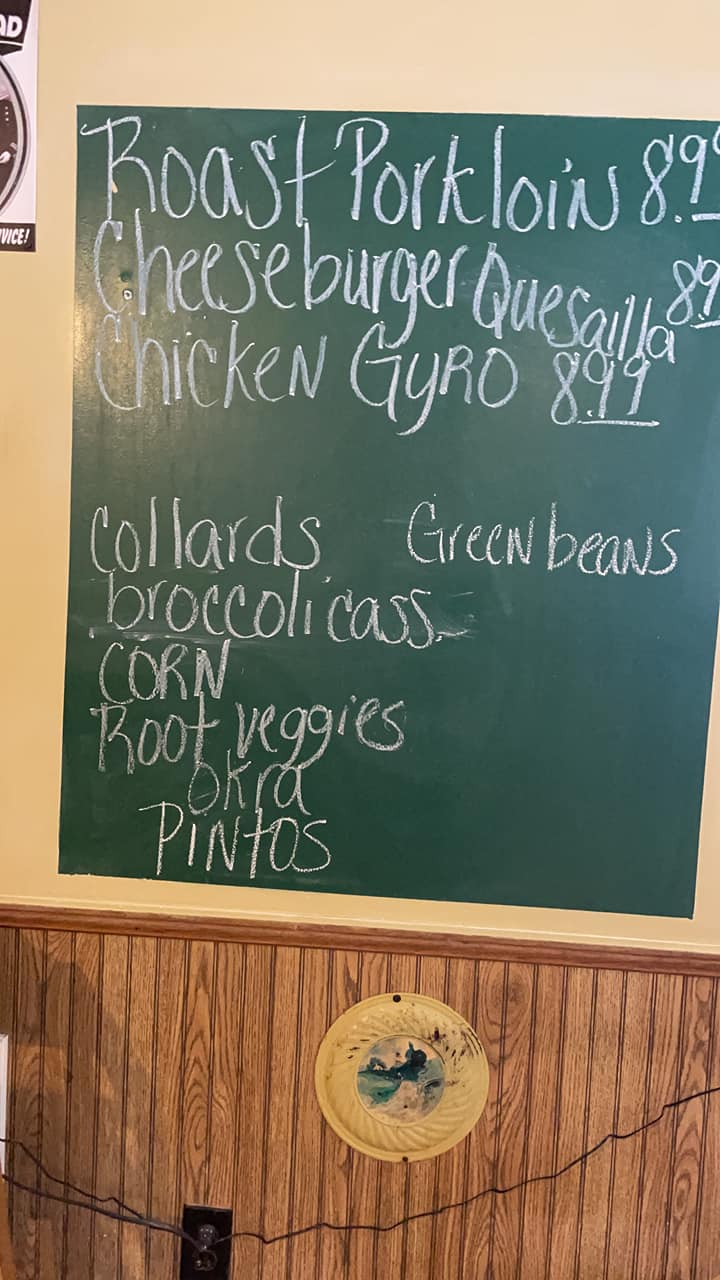 AD
VICE!
Roast Pork loin 8.99
Cheeseburger Quesailla 8.9
Chicken Gyro 8.99
Collards Green beans
broccoli cass.
CORN
Root veggies
okra
PINtOS